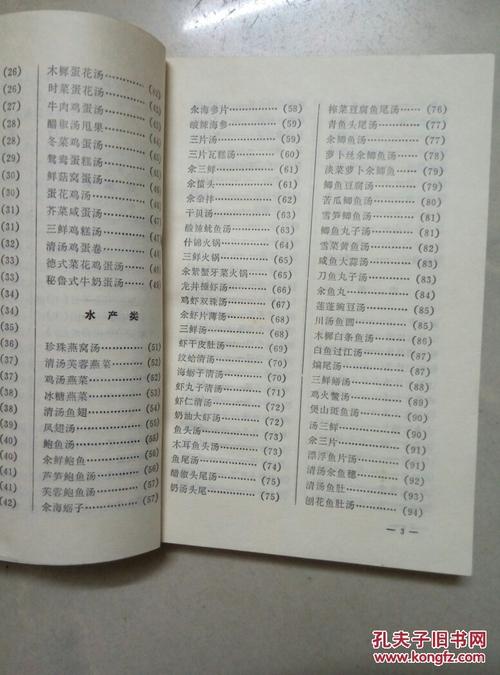 (26)
(26)
(27)
(28)
(28)
(29)
(30)
(31)
(31)
(32)
(33)
(34)
(34)
(35)
(36)
(37)
(38)
(39)
(40)
(40)
(41)
(42)
木樨蛋花汤
时菜蛋花汤
牛肉鸡蛋汤(43)
醋椒汤甩果
冬菜鸡蛋汤
鸳鸯蛋糕汤
鲜菇窝蛋汤
蛋花鸡汤
芥菜咸蛋汤
三鲜鸡糕汤
清汤鸡蛋卷
德式菜花鸡蛋汤
秘鲁式牛奶蛋汤
水产类
珍珠燕窝汤(51)
清汤芙蓉燕菜(52)
鸡汤燕菜(52)
冰糖燕菜(53)
清汤鱼翅(54)
凤翅汤
鲍鱼汤(55)
汆鲜鲍鱼(56)
芦笋鲍鱼汤(56)
芙蓉鲍鱼汤(57)
汆海蛎子(57)
汆海参片(58)
酸辣海参(59)
三片汤(59)
三片瓦糕汤(60)
汆三鲜(61)
汆蜇头(61)
汆杂拌(62)
干贝汤(63)
酸辣鱿鱼汤(63)
什锦火锅(64)
三鲜火锅(65)
汆紫蟹牙菜火锅(65)
龙井捶虾汤(66)
鸡虾双珠汤(67)
汆虾片薄汤(68)
三鲜汤(68)
虾干皮肚汤(69)
汶蛤清汤(70)
海蛎子清汤(70)
虾丸子清汤(71)
虾仁清汤(72)
奶油大虾汤(72)
鱼头汤(73)
木耳鱼头汤(74)
鱼尾汤(74)
醋椒头尾汤(75)
奶汤头尾(75)
榨菜豆腐鱼尾汤(76)
青鱼头尾汤(77)
汆鲫鱼汤(77)
萝卜丝汆鲫鱼汤(78)
淡菜萝卜汆鲫鱼(79)
鲫鱼豆腐汤(79)
苦瓜鲫鱼汤(80)
雪笋鲫鱼汤(81)
鲫鱼丸子汤(81)
雪菜黄鱼汤(82)
咸鱼大蒜汤(83)
刀鱼丸子汤(83)
汆鱼丸(84)
莲蓬豌豆汤(85)
川汤鱼圆(85)
木樨白条鱼汤(86)
白鱼过江汤(87)
煸尾汤(88)
三鲜鳝汤(88)
鸡火鳖汤(89)
煲山斑鱼汤(90)
汤三鲜(90)
汆三片(91)
漂浮鱼片汤(91)
清汤汆鱼穗(92)
清汤鱼肚(93)
刨花鱼肚汤(94)
— 3 —
孔夫子旧书网
www.kongfz.com